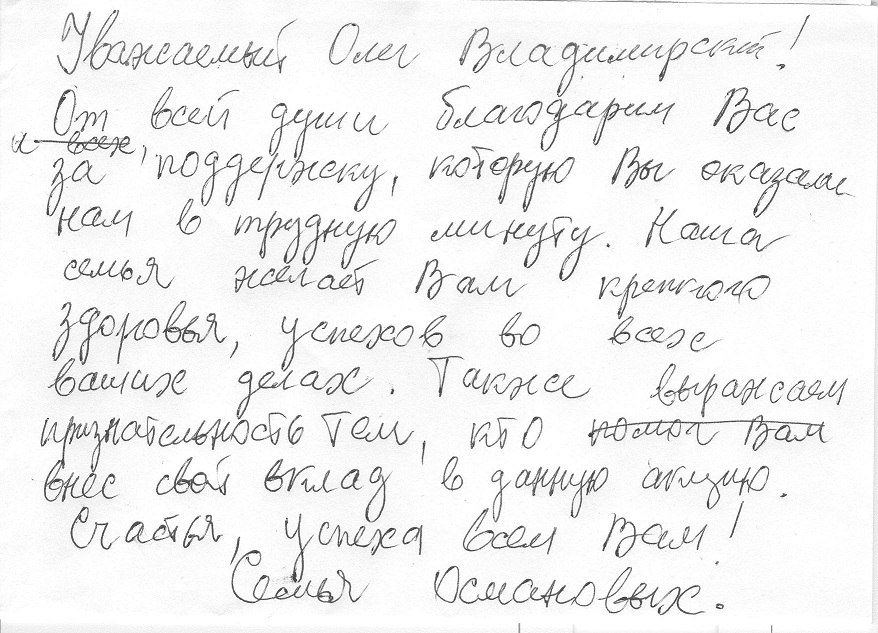 Уважаемый Олег Владимирский!
От всей души благодарим Вас
и всех,
за поддержку, которую Вы оказали
нам в трудную минуту. Наша
семья желает Вам крепкого
здоровья, успехов во всех
ваших делах. Также выражаем
признательность тем, кто помог Вам
внёс свой вклад в данную акцию.
Счастья, успеха всем Вам!
Семья Османовых.